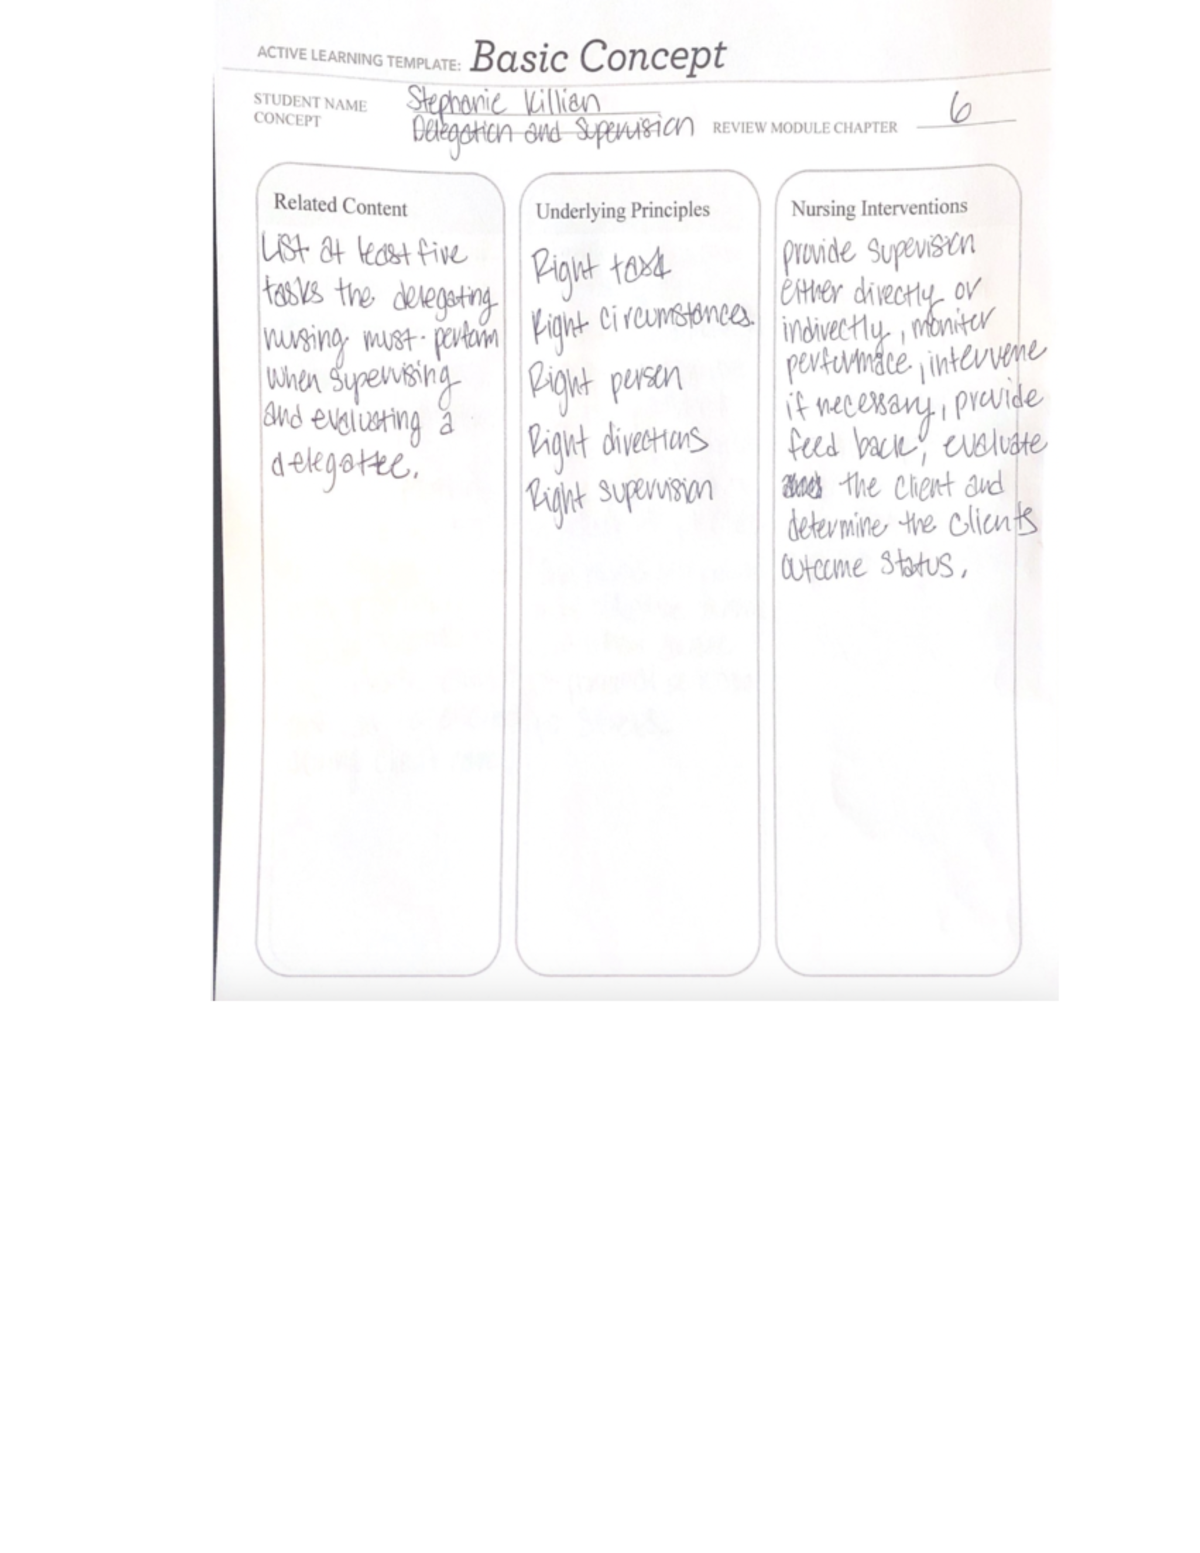 ACTIVE LEARNING TEMPLATE: Basic Concept
STUDENT NAME Stephanie Killian
CONCEPT Delegation and Supervision REVIEW MODULE CHAPTER 6
Related Content
List at least five
tasks the delegating
nursing must perform
when supervising
and evaluating a
delegattee.
Underlying Principles
Right task
Right circumstances.
Right person
Right directions
Right supervision
Nursing Interventions
provide supervision
either directly or
indirectly, moniter
performace, intervene
if necessary, provide
feed back, evaluate
the client and
determine the clients
outcome status.